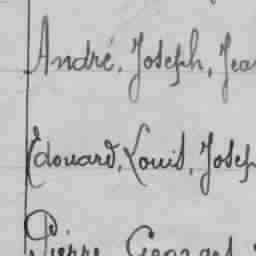 André, Joseph, Jea
Edouard, Louis, Josep
Pierre Georges